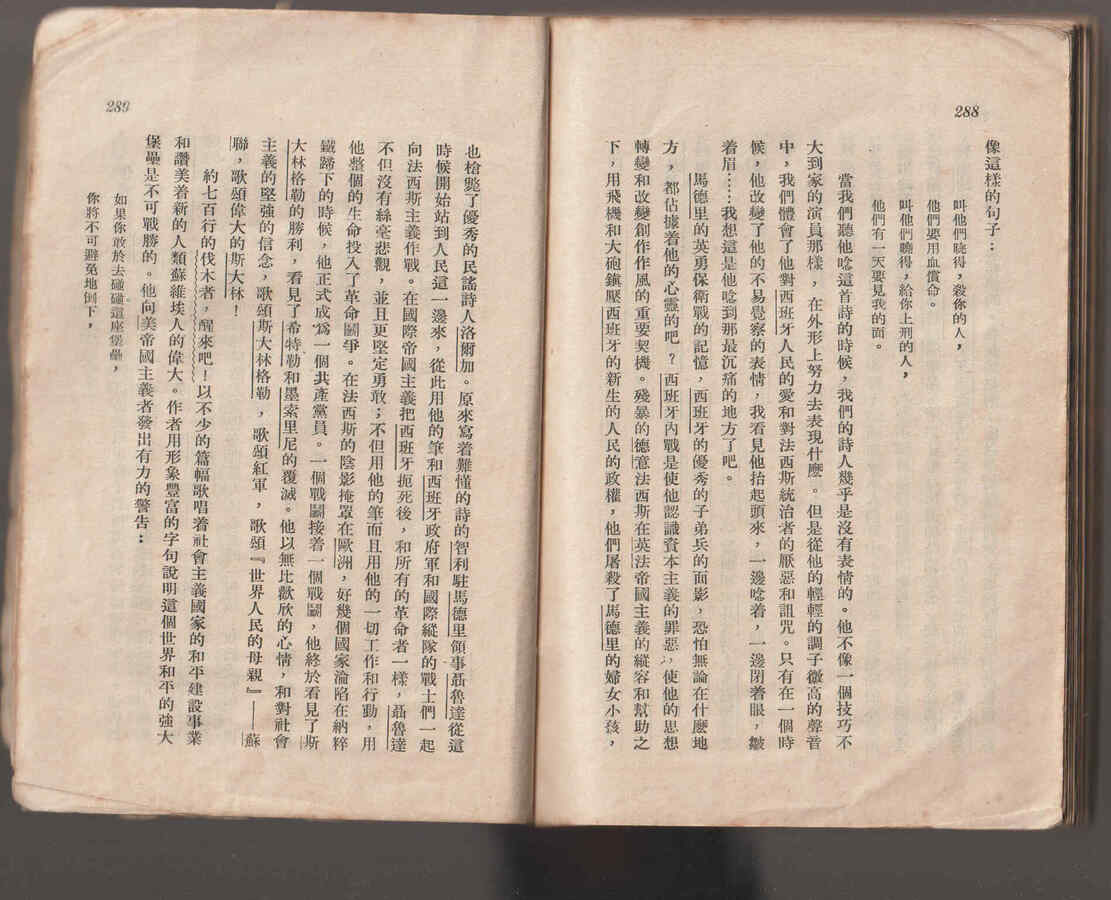 288
像這樣的句子：
叫他們曉得，殺你的人，
他們要用血償命。
叫他們曉得，給你上刑的人，
他們有一天要見我的面。
當我們聽他唸這首詩的時候，我們的詩人幾乎是沒有表情的。他不像一個技巧不
大到家的演員那樣，在外形上努力去表現什麼。但是從他的輕輕的調子微高的聲音
中，我們體會了他對西班牙人民的愛和對法西斯統治者的厭惡和詛咒。只有在一個時
候，他改變了他的不易覺察的表情，我看見他抬起頭來，一邊唸着，一邊閉着眼，皺
着眉……我想這是他唸到那最沉痛的地方了吧。
馬德里的英勇保衛戰的記憶，西班牙的優秀的子弟兵的面影，恐怕無論在什麼地
方，都佔據着他的心靈的吧？西班牙內戰是使他認識資本主義的罪惡，使他的思想
轉變和改變創作作風的重要契機。殘暴的德意法西斯在英法帝國主義的縱容和幫助之
下，用飛機和大砲鎮壓西班牙的新生的人民的政權，他們屠殺了馬德里的婦女小孩，
289
也槍斃了優秀的民謠詩人洛爾加。原來寫着難懂的詩的智利駐馬德里領事聶魯達從這
時候開始站到人民這一邊來，從此用他的筆和西班牙政府軍和國際縱隊的戰士們一起
向法西斯主義作戰。在國際帝國主義把西班牙扼死後，和所有的革命者一樣，聶魯達
不但沒有絲毫悲觀，並且更堅定勇敢；不但用他的筆而且用他的一切工作和行動，用
他整個的生命投入了革命鬭爭。在法西斯的陰影掩罩在歐洲，好幾個國家淪陷在納粹
鐵蹄下的時候，他正式成爲一個共產黨員。一個戰鬭接着一個戰鬭，他終於看見了斯
大林格勒的勝利，看見了希特勒和墨索里尼的覆滅。他以無比歡欣的心情，和對社會
主義的堅強的信念，歌頌斯大林格勒，歌頌紅軍，歌頌『世界人民的母親』——蘇
聯，歌頌偉大的斯大林！
約七百行的伐木者，醒來吧！以不少的篇幅歌唱着社會主義國家的和平建設事業
和讚美着新的人類蘇維埃人的偉大。作者用形象豐富的字句說明這個世界和平的強大
堡壘是不可戰勝的。他向美帝國主義者發出有力的警告：
如果你敢於去碰碰這座堡壘，
你將不可避免地倒下，